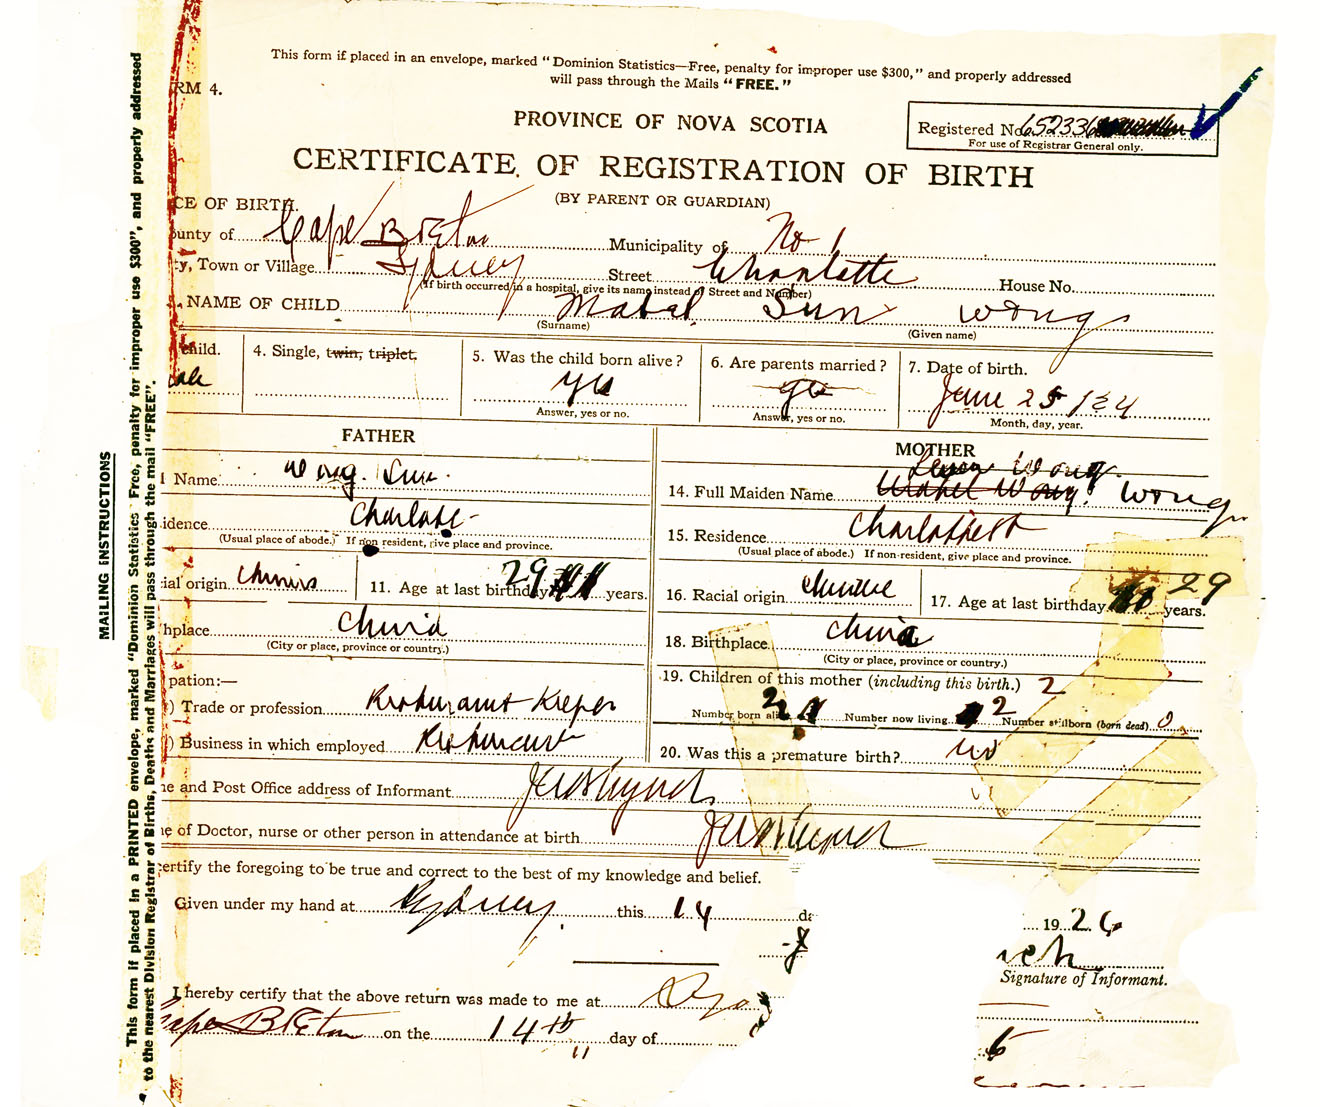 This form if placed in an envelope, marked "Dominion Statistics—Free, penalty for improper use $300," and properly addressed
will pass through the Mails "FREE."
RM 4.
PROVINCE OF NOVA SCOTIA
Registered No. 652336
For use of Registrar General only.
CERTIFICATE OF REGISTRATION OF BIRTH
(BY PARENT OR GUARDIAN)
CE OF BIRTH.
ounty of Cape Breton Municipality of No 1
ty, Town or Village Sydney Street Charlotte House No.
(If birth occurred in a hospital, give its name instead of Street and Number)
NAME OF CHILD Mabel Sun Wong
(Surname) (Given name)
child. 4. Single, twin, triplet, 5. Was the child born alive? 6. Are parents married? 7. Date of birth.
ale yes yes June 25
Answer, yes or no. Answer, yes or no. Month, day, year.
FATHER MOTHER
Name Wong Sun 14. Full Maiden Name Wong Wong
idence 15. Residence
(Usual place of abode.) If non resident, give place and province. (Usual place of abode.) If non-resident, give place and province.
ial origin 11. Age at last birthday 29 years. 16. Racial origin 17. Age at last birthday 29 years.
hplace China 18. Birthplace China
(City or place, province or country.) (City or place, province or country.)
pation:— 19. Children of this mother (including this birth.) 2
) Trade or profession Keeper Number born ali 2 Number now living 2 Number stillborn (born dead) 0
) Business in which employed 20. Was this a premature birth? no
e and Post Office address of Informant
e of Doctor, nurse or other person in attendance at birth
ertify the foregoing to be true and correct to the best of my knowledge and belief.
Given under my hand at Sydney this 14 da 1926
Signature of Informant.
I hereby certify that the above return was made to me at
Cape Breton on the 14th day of
MAILING INSTRUCTIONS
This form if placed in a PRINTED envelope, marked "Dominion Statistics Free, penalty for improper use $300", and properly addressed
to the nearest Division Registrar of Births, Deaths and Marriages will pass through the mail "FREE".